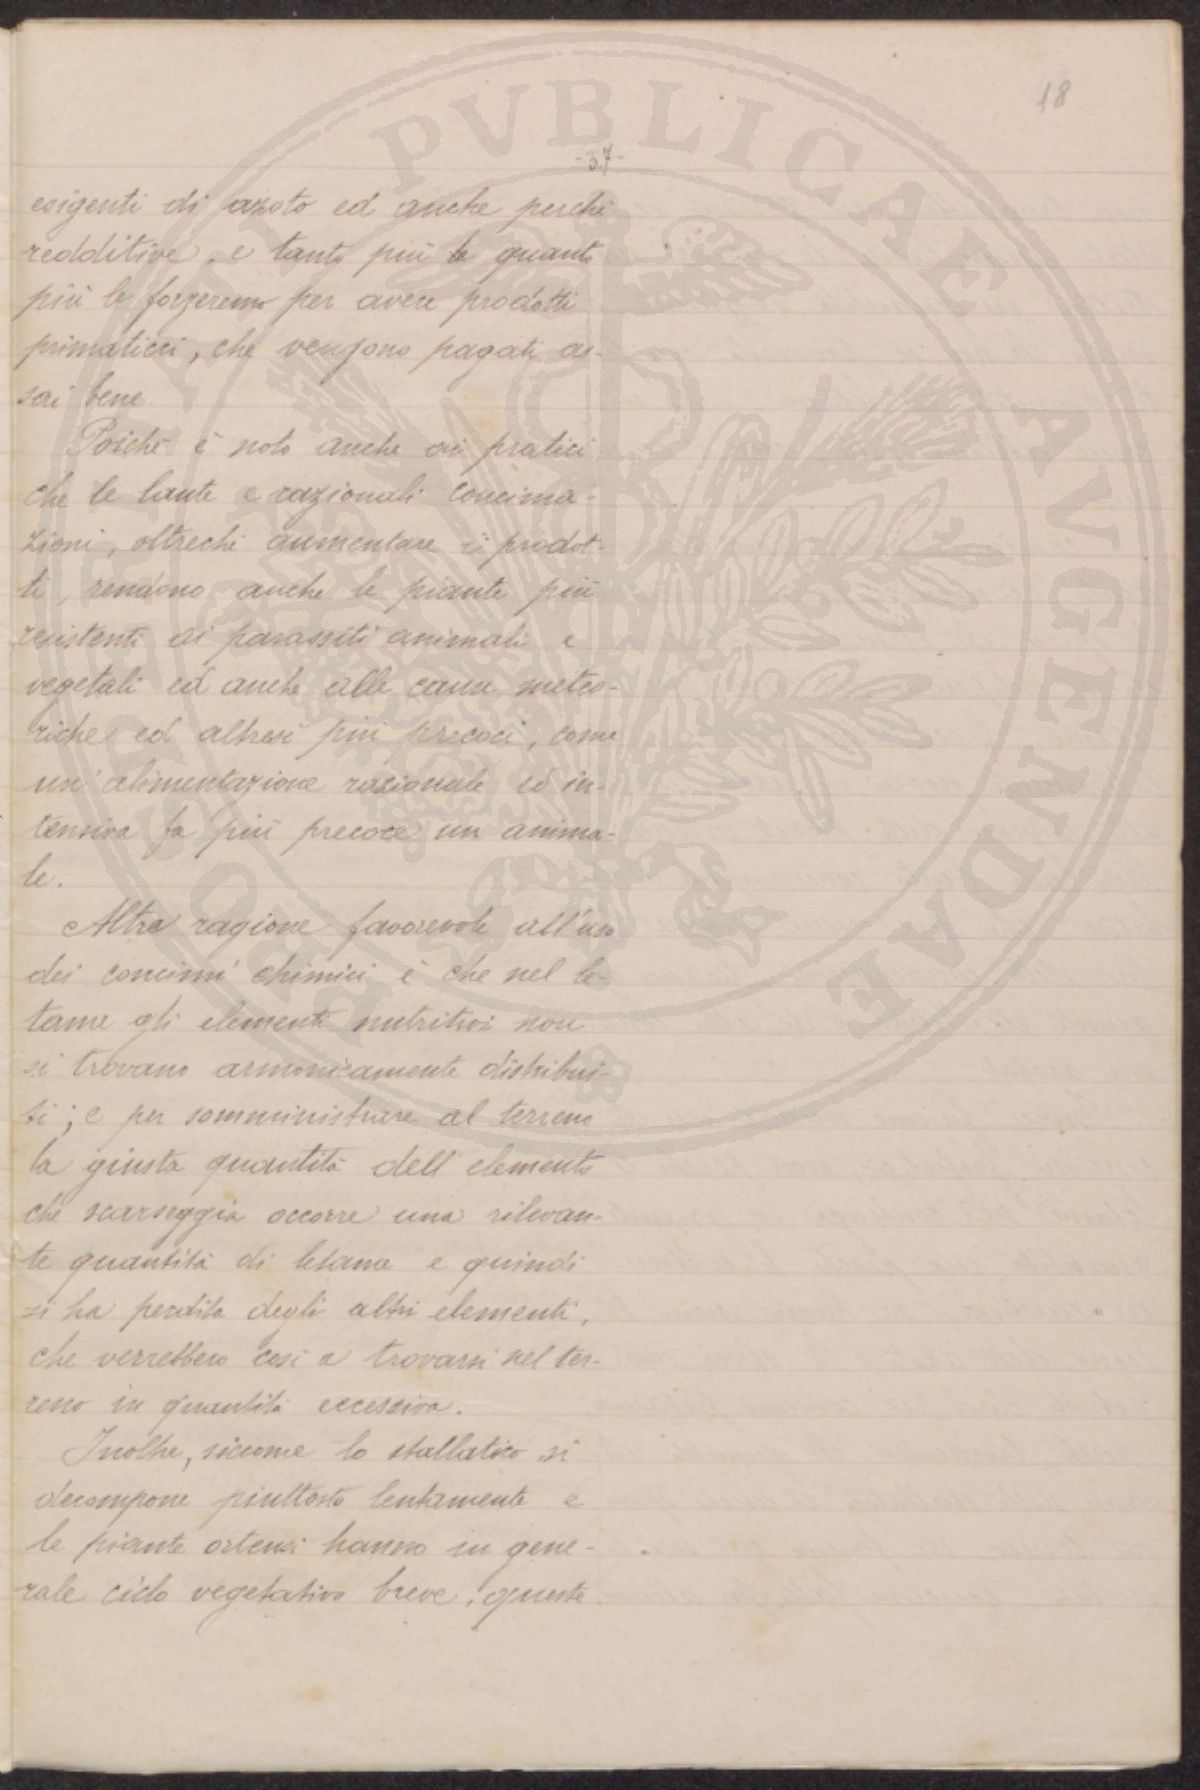 18
-37-
esigenti di azoto ed anche perchè
redditive, e tanto più le quanto
più le forzeremo per avere prodotti
primaticci, che vengono pagati as-
sai bene.
Poichè è noto anche ai pratici
che le laute e razionali concima-
zioni, oltrechè aumentare i prodot-
ti, rendono anche le piante più
resistenti ai parassiti animali e
vegetali ed anche alle cause meteo-
riche ed altresì più precoci, come
un'alimentazione razionale ed in-
tensiva fa più precoce un anima-
le.
Altra ragione favorevole all'uso
dei concimi chimici è che nel le-
tame gli elementi nutritivi non
si trovano armonicamente distribui-
ti; e per somministrare al terreno
la giusta quantità dell'elemento
che scarseggia occorre una rilevan-
te quantità di letame e quindi
si ha perdita degli altri elementi,
che verrebbero così a trovarsi nel ter-
reno in quantità eccessiva.
Inoltre, siccome lo stallatico si
decompone piuttosto lentamente e
le piante ortensi hanno in gene-
rale ciclo vegetativo breve, queste
PUBLICAE AVGENDAE